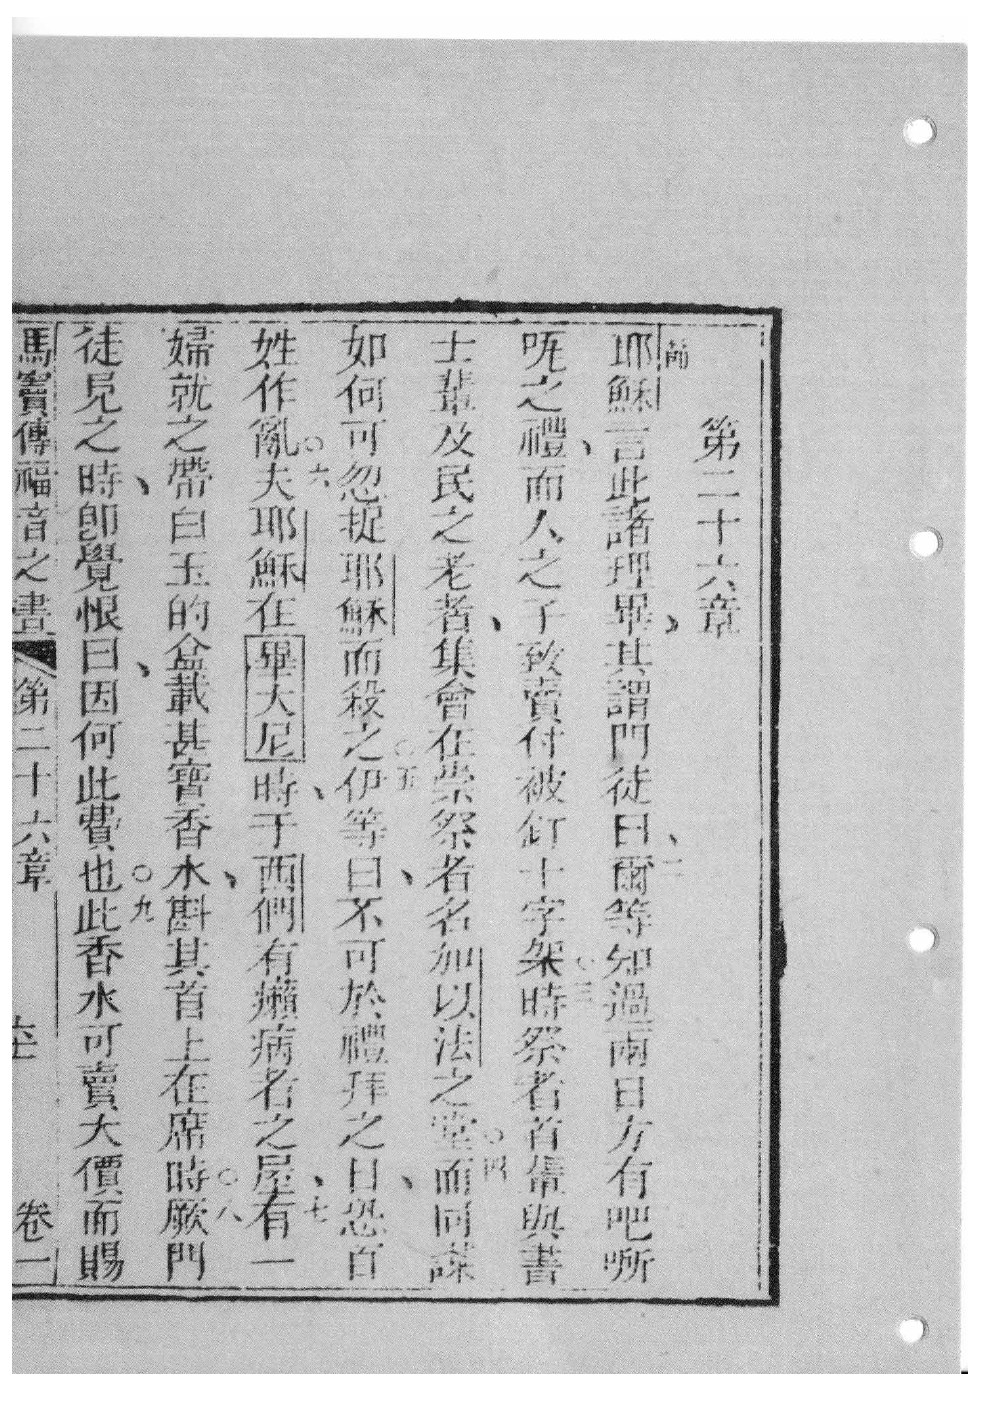 第二十六章
節
耶穌言此諸理畢其謂門徒曰爾等知過兩日方有吧㗭
二
呃之禮而人之子致賣付被釘十字架時祭者首輩與書
三
士輩及民之老者集會在崇祭者名加以法之堂而同謀
四
如何可忽捉耶穌而殺之伊等曰不可於禮拜之日恐百
五
姓作亂夫耶穌在畢大尼時于西們有癩病者之屋有一
六
七
婦就之帶白玉的盒載甚寶香水斟其首上在席時厥門
八
徒見之時即覺恨曰因何此費也此香水可賣大價而賜
九
馬竇傳福音之書 第二十六章 卷一